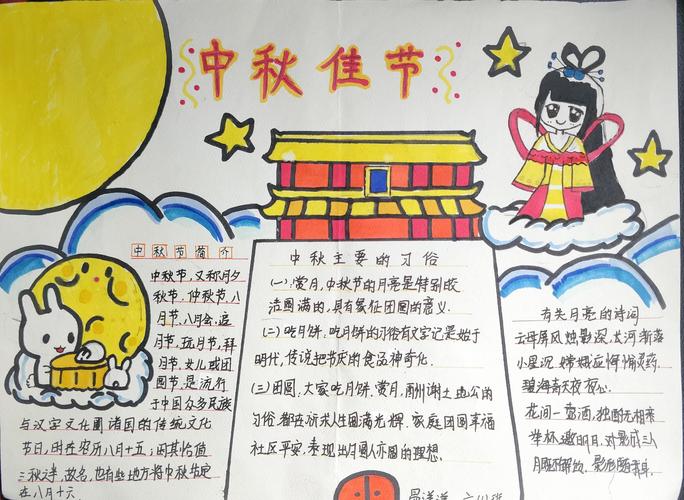 中秋佳节
中秋节简介
中秋节,又称月夕
秋节、仲秋节、八
月节、八月会、追
月节、玩月节、拜
月节、女儿节或团
圆节,是流行
于中国众多民族
与汉字文化圈诸国的传统文化
节日,时在农历八月十五;因其恰值
三秋之半,故名,也有些地方将中秋节定
在八月十六。
中秋主要的习俗
(一)赏月,中秋节的月亮是特别皎
洁圆满的,具有象征团圆的意义.
(二)吃月饼.吃月饼的习俗有文字记是始于
明代,传说把节庆的食品神奇化.
(三)团圆,大家吃月饼.赏月,
习俗.都在祈求人生圆满光辉.家庭团圆幸福
社区平安,表现出月圆人亦圆的理想.
有关月亮的诗词
云母屏风烛影深,长河渐落
小星沉.嫦娥应悔偷灵药.
碧海青天夜夜心.
花间一壶酒,独酌无相亲
举杯邀明月,对影成三人
月既不解饮,影徒随我身.